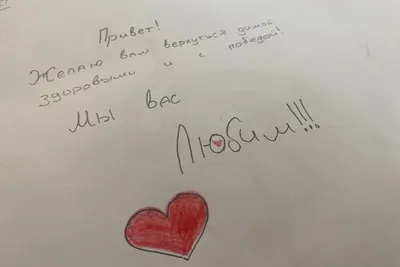 Привет!
Желаю вам вернуться домой
здоровыми и с победой!
Мы вас
Любим!!!...